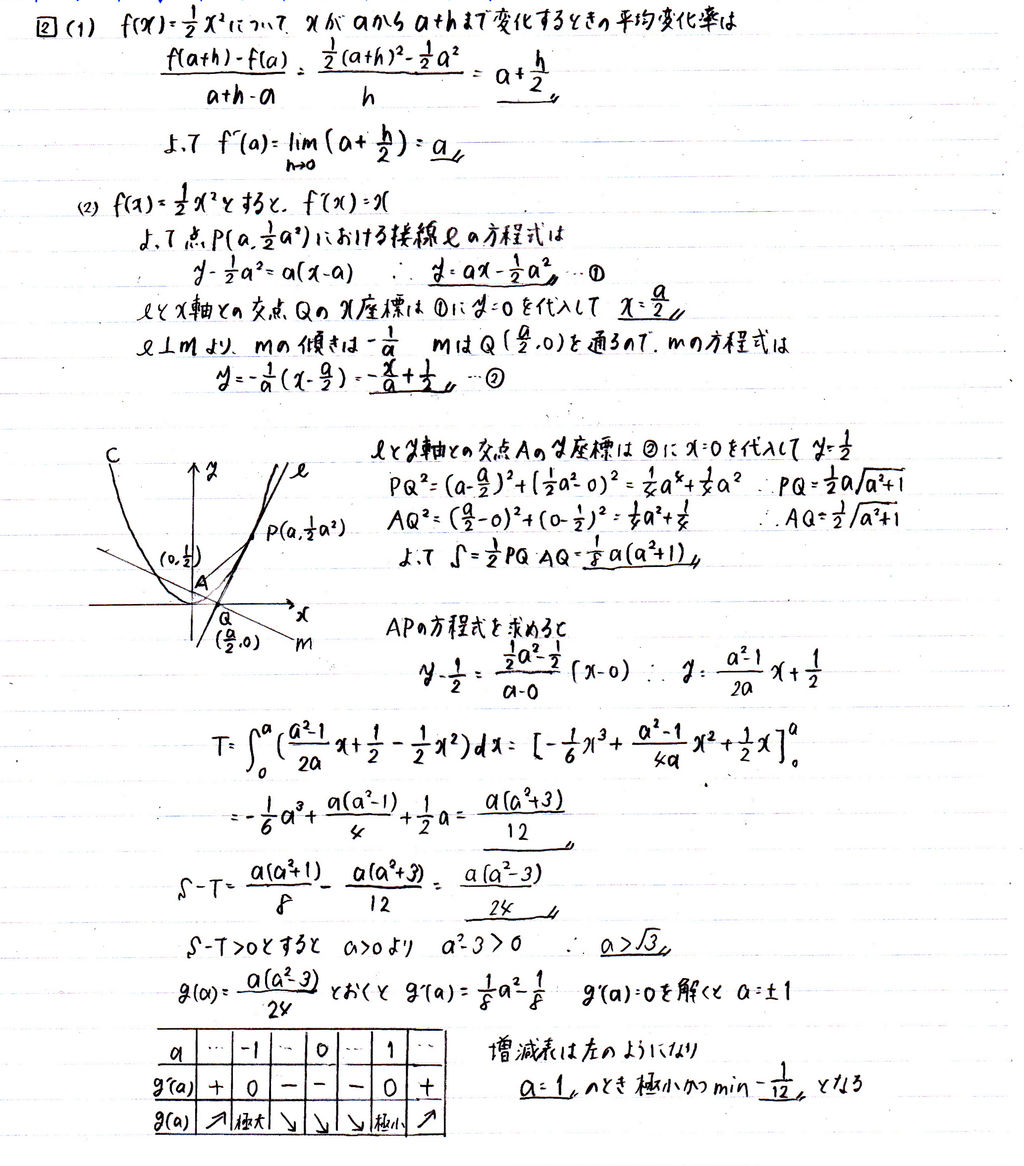 2 (1) f(x)=1/2x²について xがaからa+hまで変化するときの平均変化率は
(f(a+h)-f(a))/(a+h-a) = (1/2(a+h)²-1/2a²)/h = a+h/2
よって f'(a)=lim[h→0](a+h/2)=a
(2) f(x)=1/2x²とすると. f'(x)=x
よって点P(a, 1/2a²)における接線ℓの方程式は
y-1/2a²=a(x-a) ∴ y=ax-1/2a² …①
ℓとx軸との交点Qのx座標は①にy=0を代入して x=a/2
ℓ⊥mより、mの傾きは-1/a mはQ(a/2, 0)を通るので、mの方程式は
y=-1/a(x-a/2)=-x/a+1/2 …②
ℓとy軸との交点Aのy座標は②にx=0を代入して y=1/2
PQ²=(a-a/2)²+(1/2a²-0)²=1/4a⁴+1/4a² ∴PQ=1/2a√(a²+1)
AQ²=(a/2-0)²+(0-1/2)²=1/4a²+1/4 ∴AQ=1/2√(a²+1)
よって S=1/2PQ·AQ=1/8a(a²+1)
C
y
ℓ
P(a, 1/2a²)
(0, 1/2)
A
x
Q
(a/2, 0)
m
APの方程式を求めると
y-1/2=(1/2a²-1/2)/(a-0)(x-0) ∴ y=(a²-1)/(2a)x+1/2
T=∫₀ᵃ((a²-1)/(2a)x+1/2-1/2x²)dx=[-1/6x³+(a²-1)/(4a)x²+1/2x]₀ᵃ
=-1/6a³+a(a²-1)/4+1/2a=a(a²+3)/12
S-T=a(a²+1)/8-a(a²+3)/12=a(a²-3)/24
S-T>0とすると a>0より a²-3>0 ∴ a>√3
g(a)=a(a²-3)/24とおくと g'(a)=1/8a²-1/8 g'(a)=0を解くと a=±1
a … -1 … 0 … 1 …
g'(a) + 0 - - - 0 +
g(a) ↗ 極大 ↘ ↘ ↘ 極小 ↗
増減表は左のようになり
a=1のとき極小かつmin -1/12となる